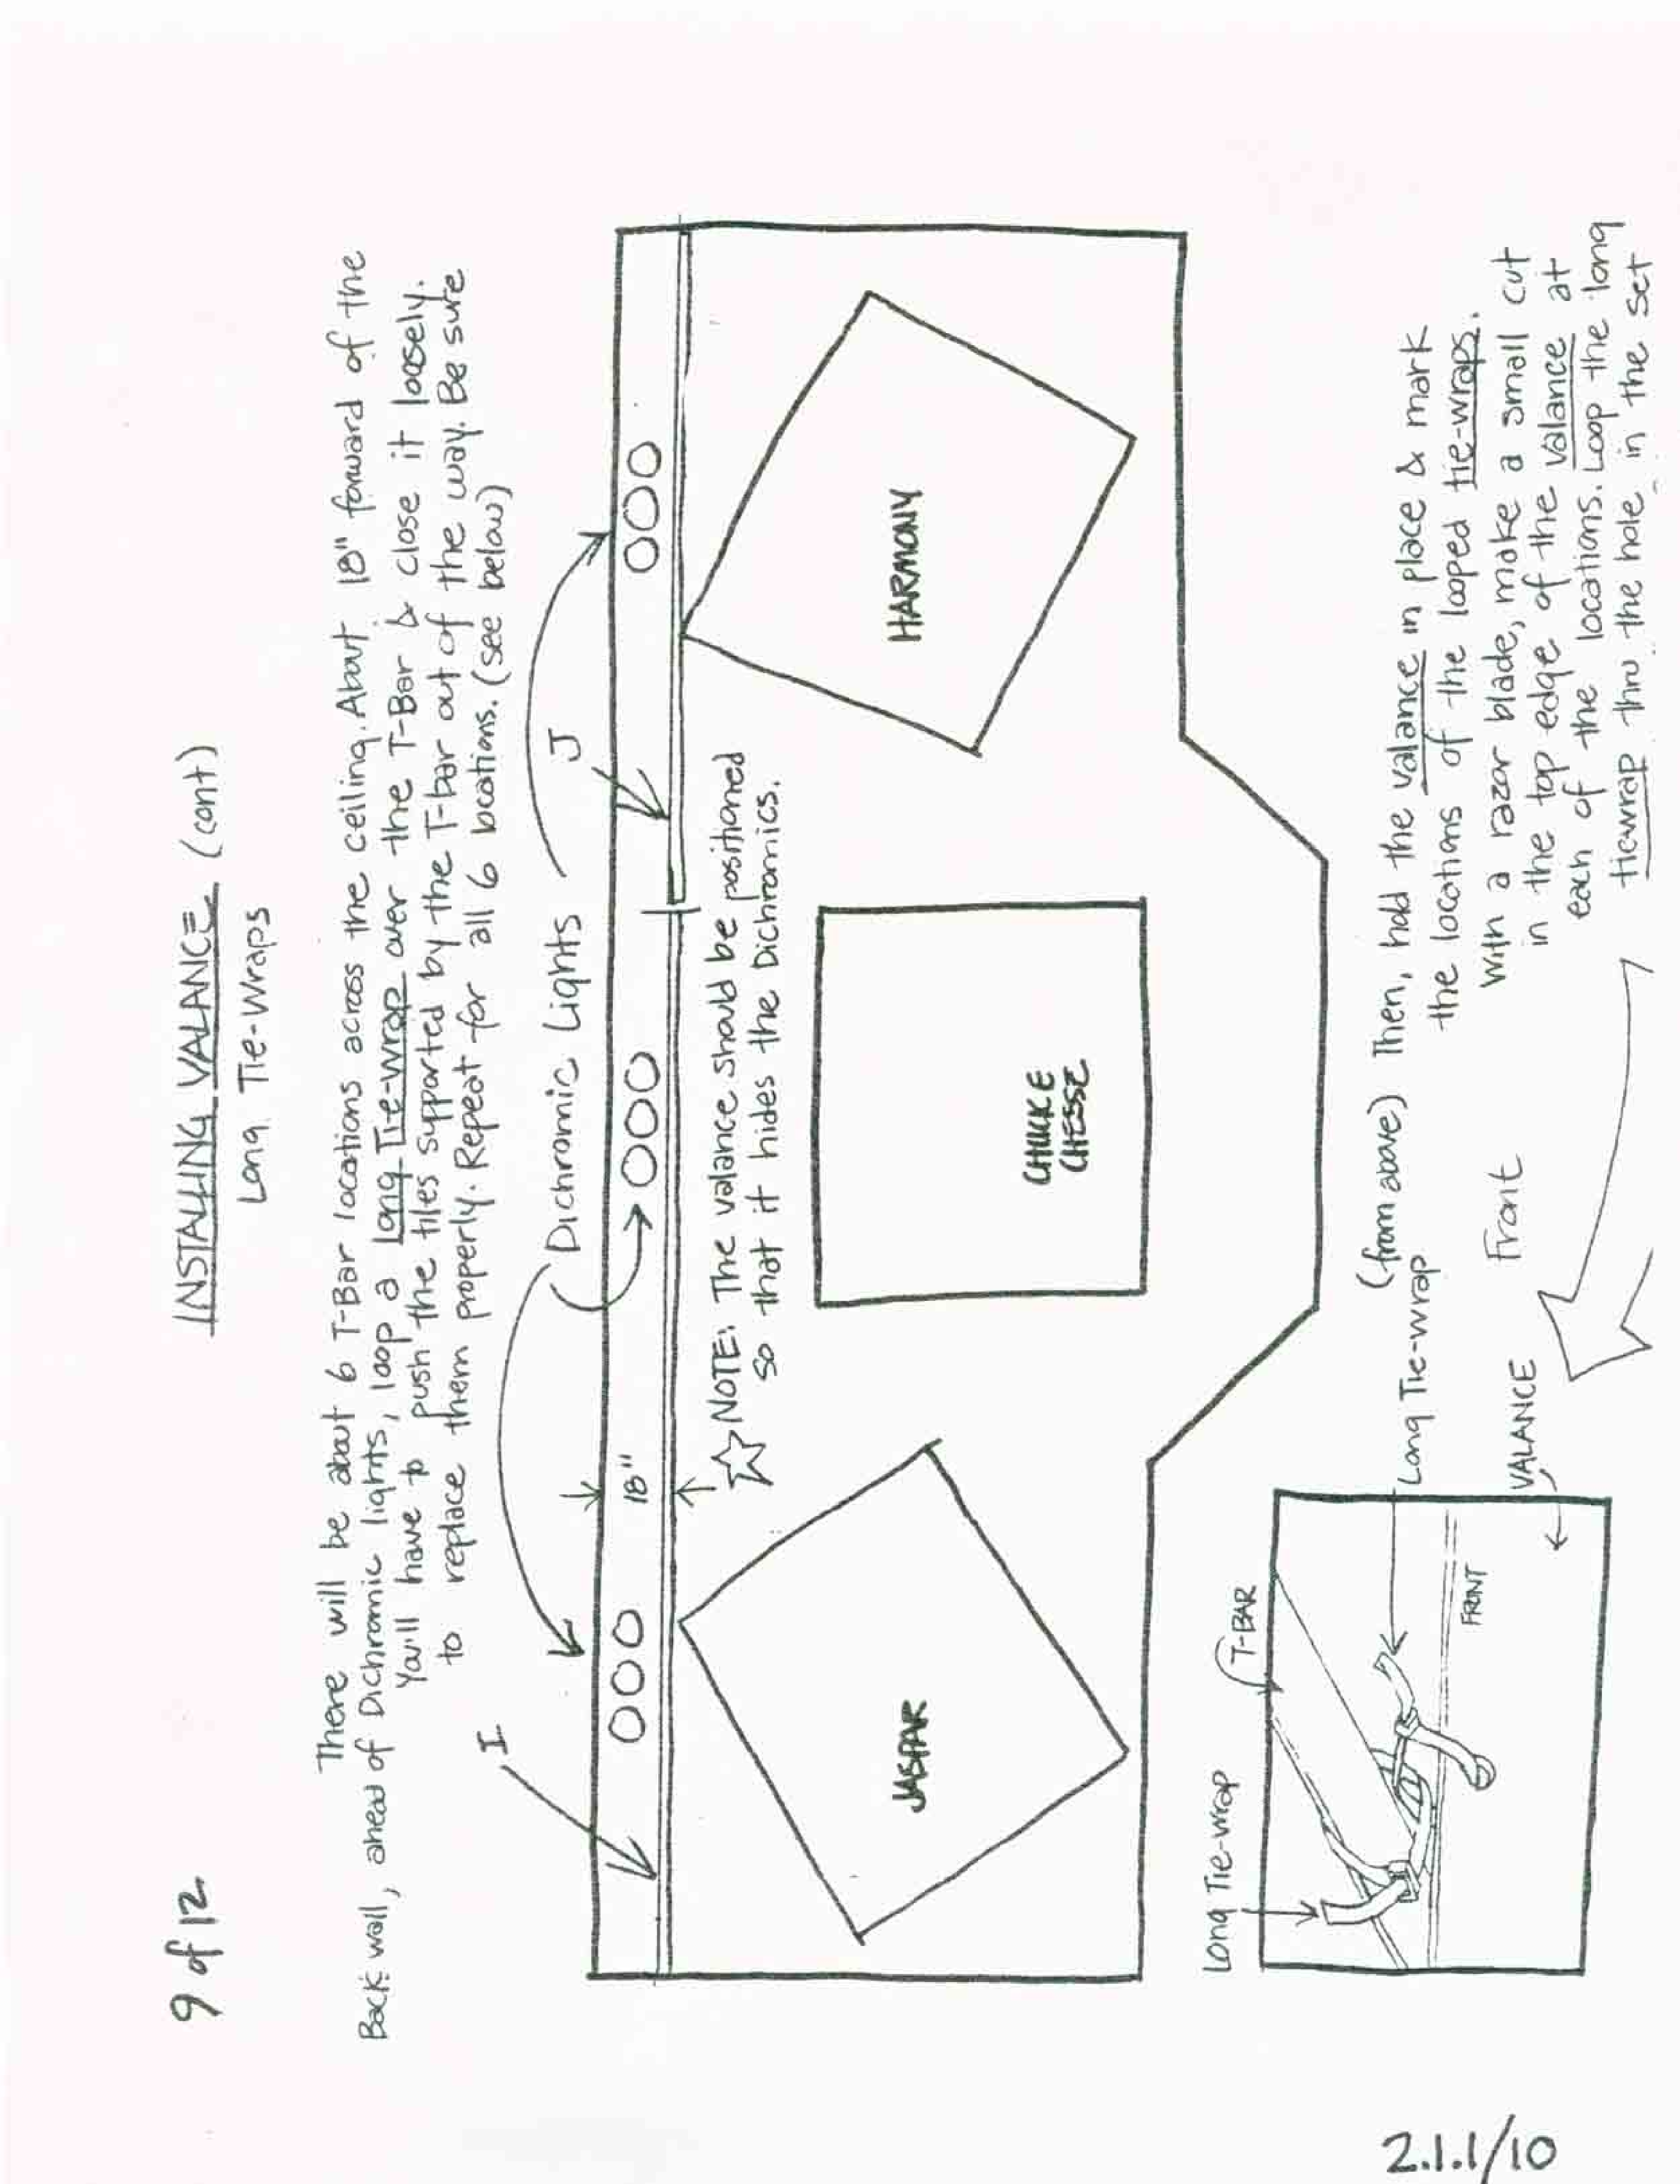 9 of 12
INSTALLING VALANCE (cont)
Long Tie-Wraps
There will be about 6 T-Bar locations across the ceiling. About 18" forward of the
Back wall, ahead of Dichromic lights, loop a Long Tie-wrap over the T-Bar & close it loosely.
You'll have to push the tiles supported by the T-bar out of the way. Be sure
to replace them properly. Repeat for all 6 locations. (see below)
Dichromic Lights
I
J
18"
☆ NOTE: The valance should be positioned
so that it hides the Dichromics.
JASPAR
CHUKE
CHESSE
HARMONY
Long Tie-wrap
T-BAR
(from above)
Long Tie-wrap
FRONT
Front
VALANCE
Then, hold the valance in place & mark
the locations of the looped tie-wraps.
With a razor blade, make a small cut
in the top edge of the valance at
each of the locations. Loop the long
tiewrap thru the hole in the set
2.1.1/10